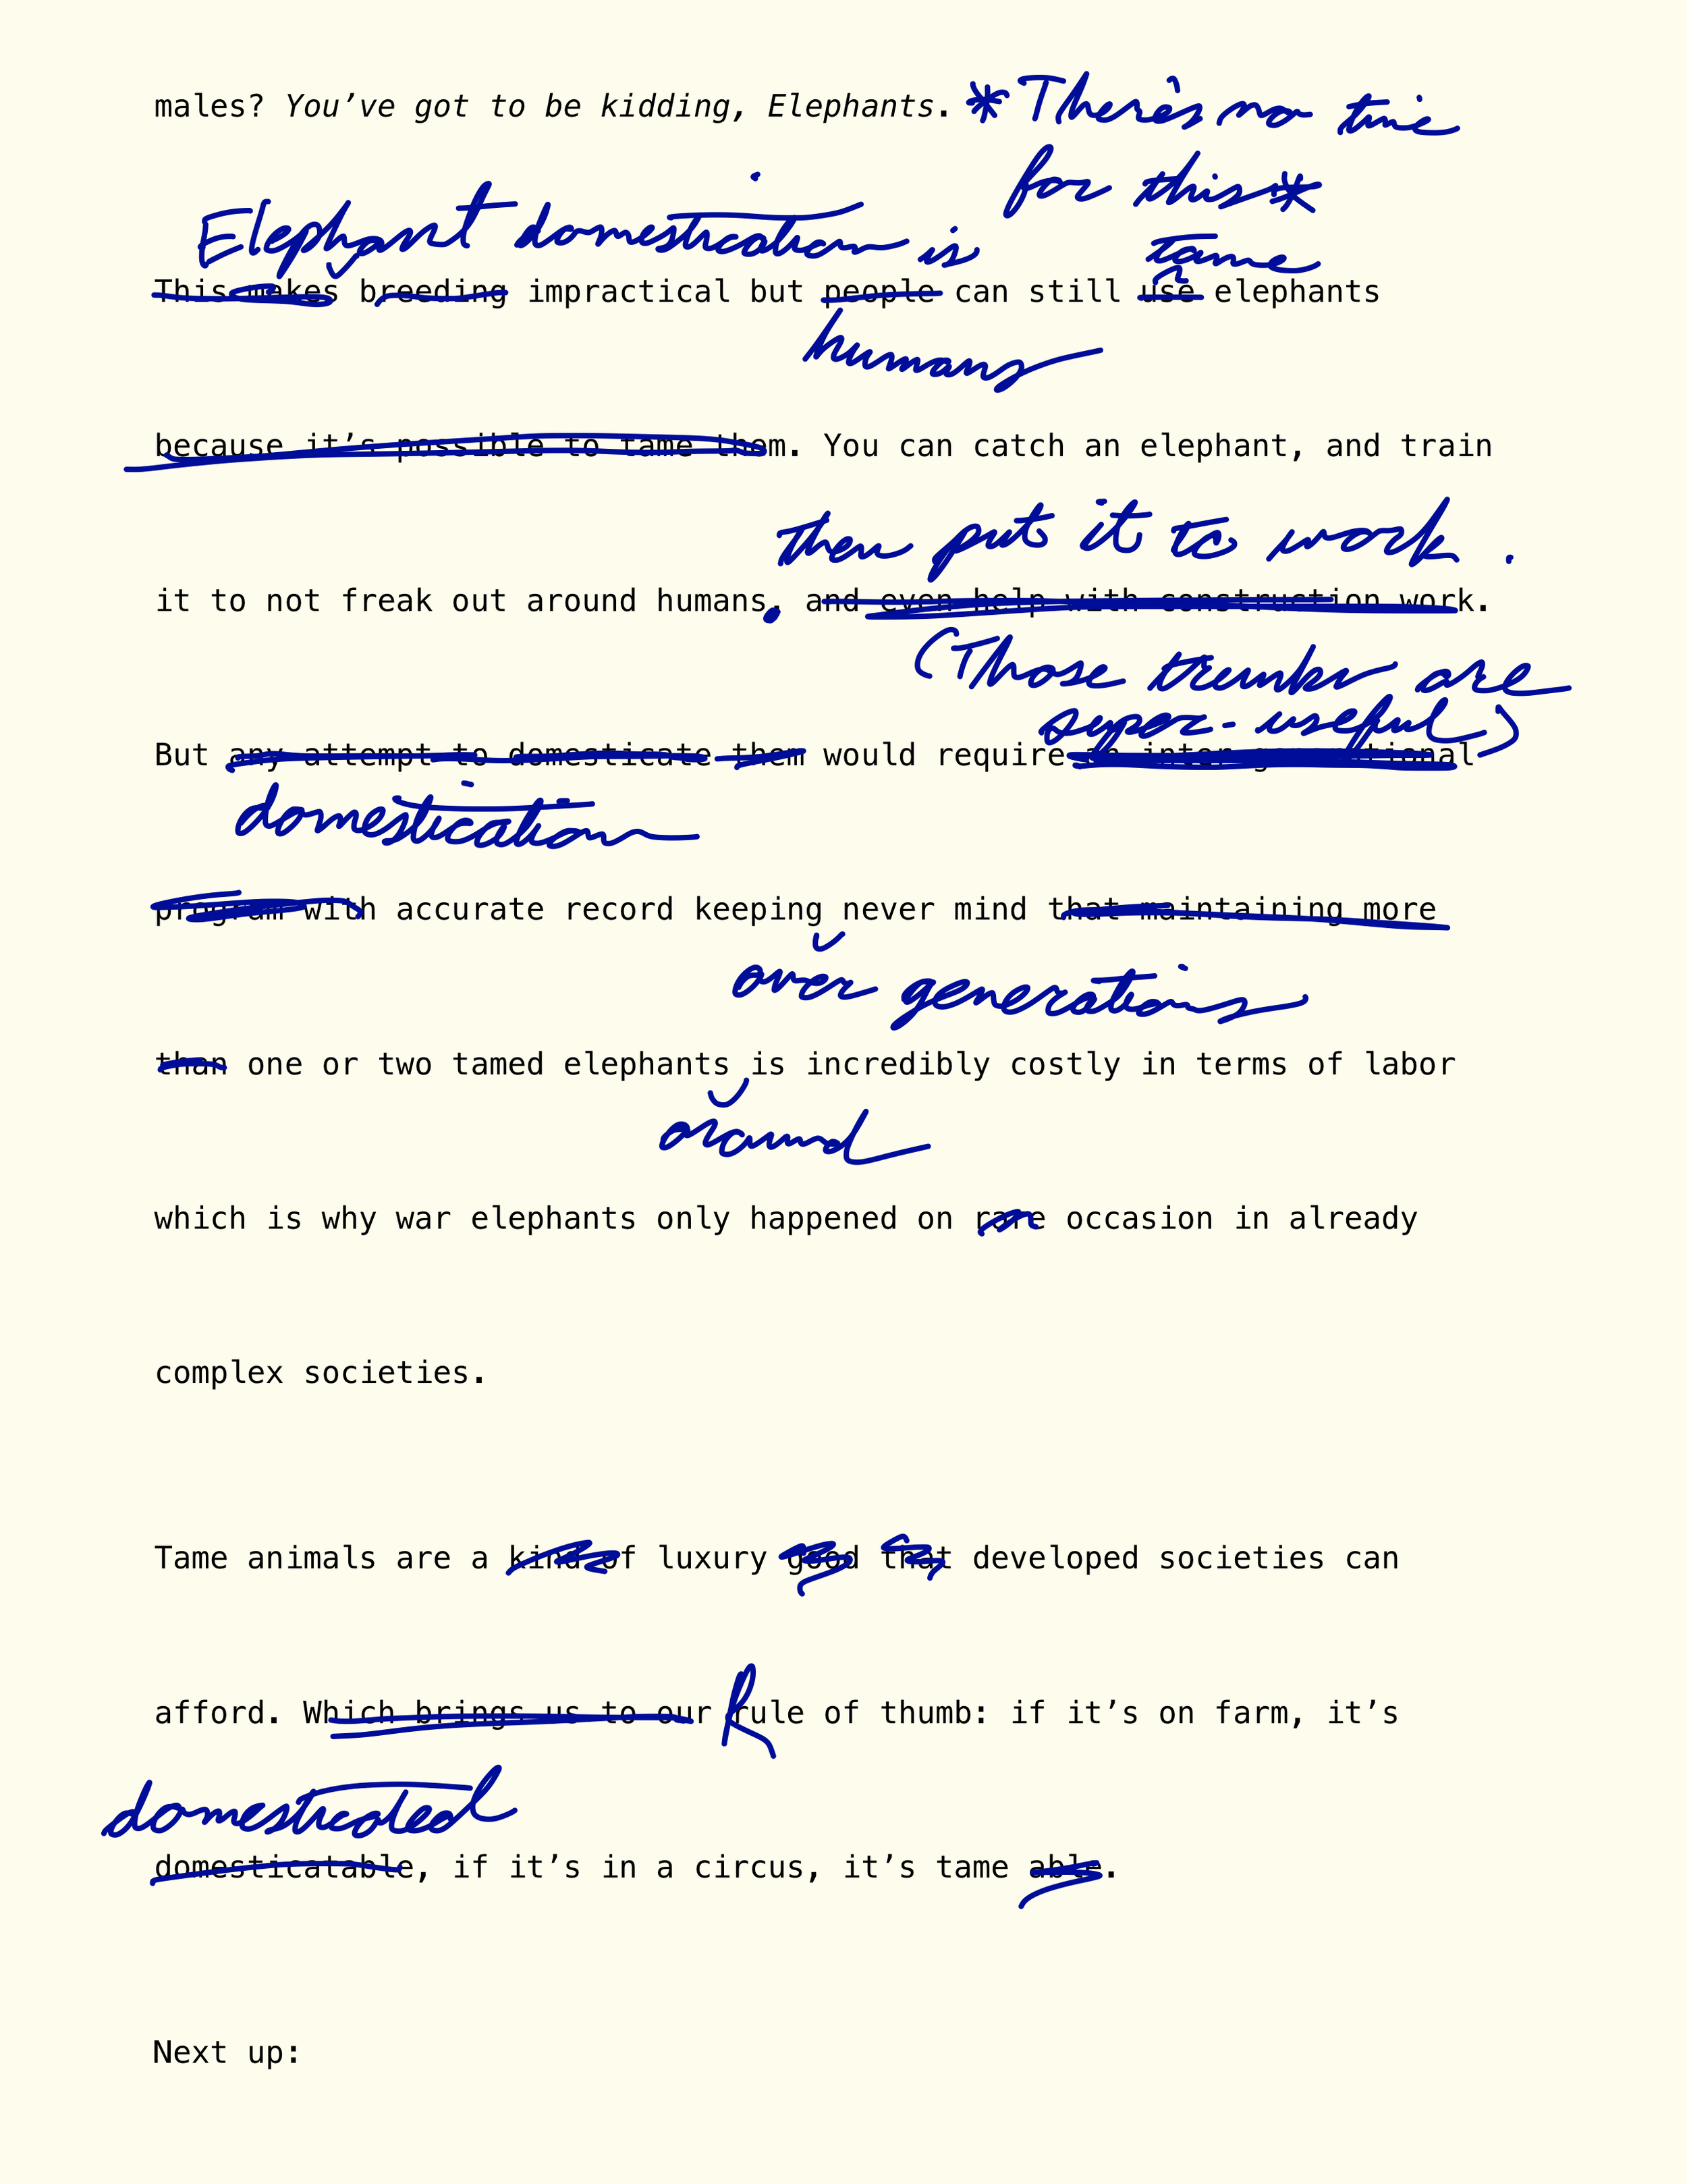 males? You've got to be kidding, Elephants. *There's no time
for this*
Elephant domestication is tame
This makes breeding impractical but people can still use elephants
humans
because it's possible to tame them. You can catch an elephant, and train
then put it to work.
it to not freak out around humans, and even help with construction work.
(Those trunks are
super-useful)
But any attempt to domesticate them would require an inter-generational
domestication
program with accurate record keeping never mind that maintaining more
over generations
than one or two tamed elephants is incredibly costly in terms of labor
around
which is why war elephants only happened on rare occasion in already
complex societies.
Tame animals are a kind of luxury good that developed societies can
afford. Which brings us to our Rrule of thumb: if it's on farm, it's
domesticated
domesticatable, if it's in a circus, it's tame able.
Next up: